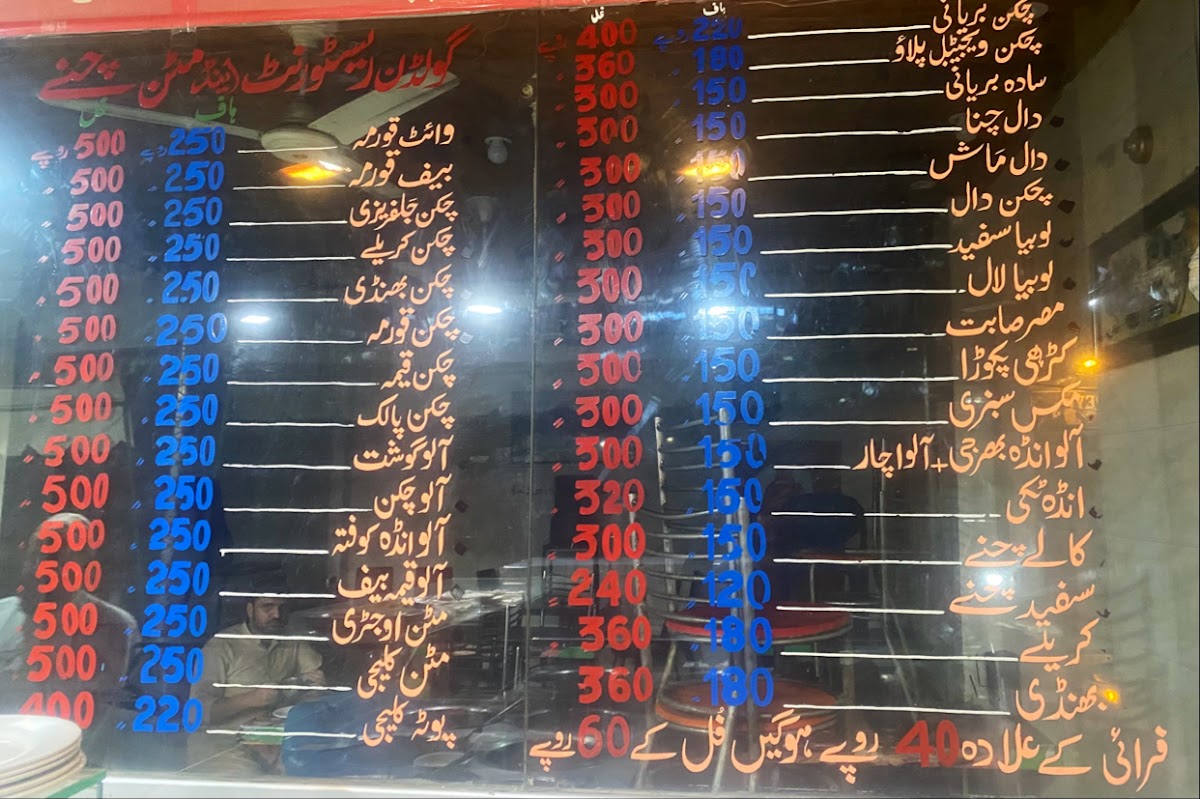 گولڈن ریسٹورنٹ اینڈ مٹن چنے
ہاف فُل
وائٹ قورمہ 250 روپے 500 روپے
بیف قورمہ 250 500
چکن جلفریزی 250 500
چکن کریلے 250 500
چکن بھنڈی 250 500
چکن قورمہ 250 500
چکن قیمہ 250 500
چکن پالک 250 500
آلو گوشت 250 500
آلو چکن 250 500
آلو انڈہ کوفتہ 250 500
آلو قیمہ بیف 250 500
مٹن اوجڑی 250 500
مٹن کلیجی 250 500
پوٹہ کلیجی 220 400
ہاف فُل
چکن بریانی 220 روپے 400 روپے
چکن ویجیٹیبل پلاؤ 180 360
سادہ بریانی 150 300
دال چنا 150 300
دال ماش 150 300
چکن دال 150 300
لوبیا سفید 150 300
لوبیا لال 150 300
مصر صابت 150 300
کڑھی پکوڑا 150 300
مکس سبزی 150 300
آلو انڈہ بھرجی + آلو اچار 150 300
انڈہ ٹکی 160 320
کالے چنے 150 300
سفید چنے 120 240
کریلے 180 360
بھنڈی 180 360
فرائی کے علادہ 40 روپے ہوگیں فُل کے 60 روپے